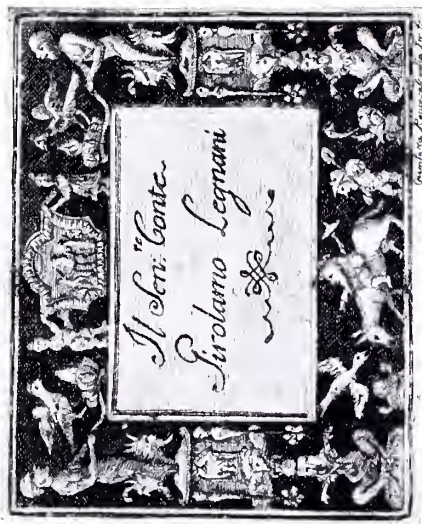 Il Sen:re Conte
Girolamo Legnani